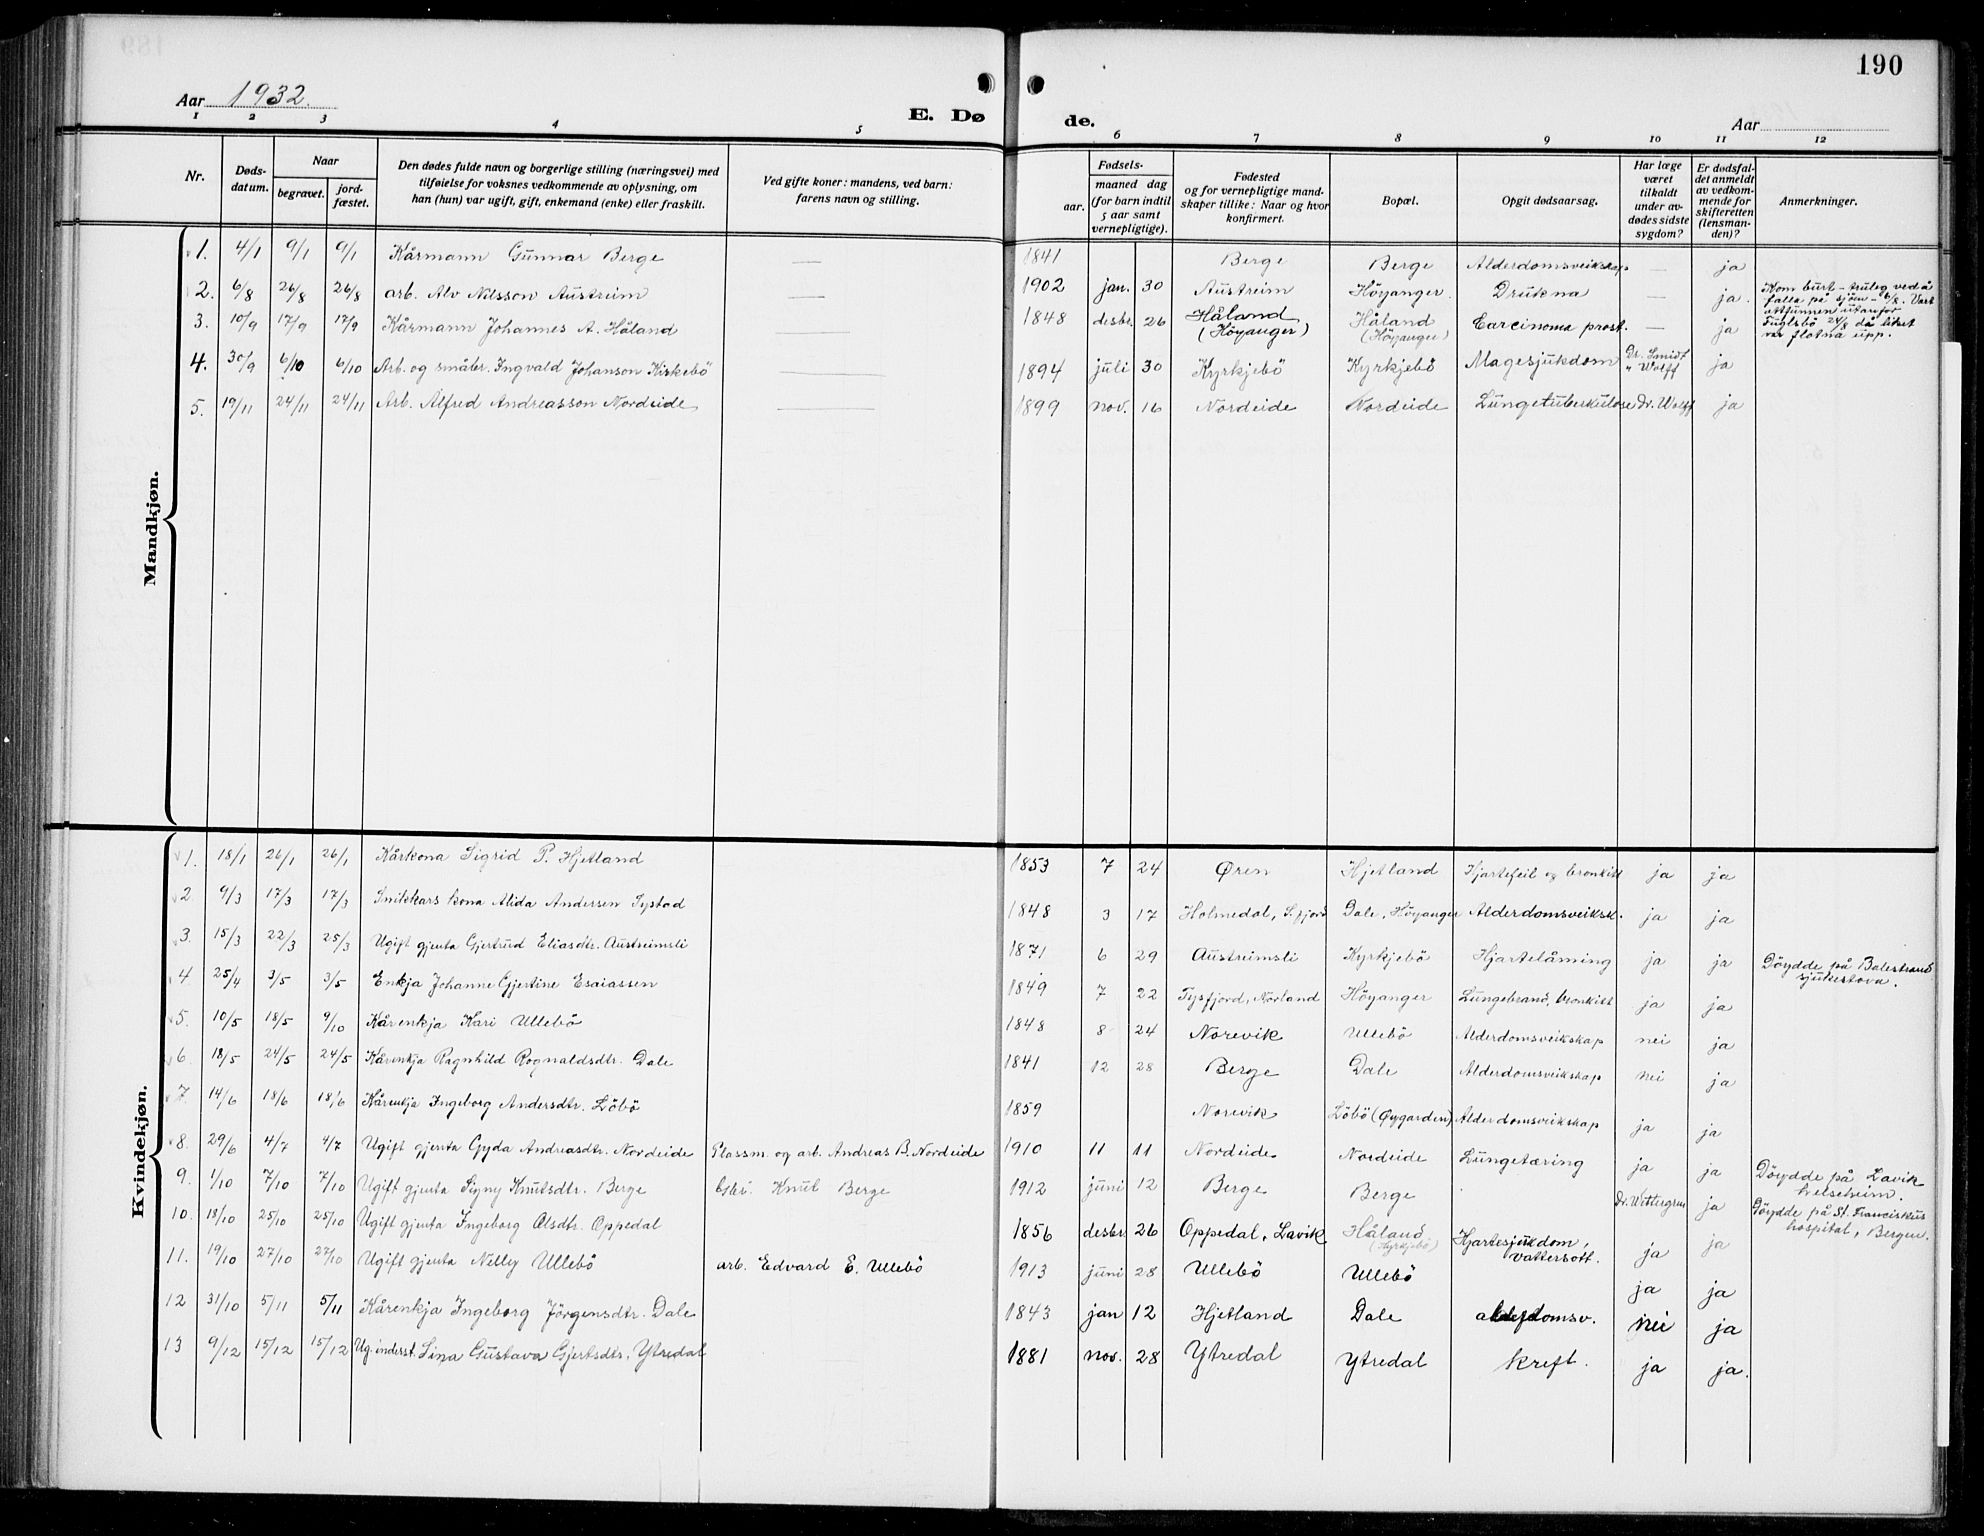 190
Aar 1932.
E. Døde.
Aar
1 2 3 4 5 6 7 8 9 10 11 12
Nr.
Døds-datum.
Naar
begravet.
jord-fæstet.
Den dødes fulde navn og borgerlige stilling (næringsvei) med
tilføielse for voksnes vedkommende av oplysning, om
han (hun) var ugift, gift, enkemand (enke) eller fraskilt.
Ved gifte koner: mandens, ved barn:
farens navn og stilling.
Fødsels-
aar.
maaned dag
(for barn indtil
5 aar samt
vernepligtige).
Fødested
og for vernepligtige mand-
skaper tillike: Naar og hvor
konfirmert.
Bopæl.
Opgit dødsaarsag.
Har læge
været
tilkaldt
under av-
dødes sidste
sygdom?
Er dødsfal-
det anmeldt
av vedkom-
mende for
skifteretten
(lensman-
den)?
Anmerkninger.
Mandkjøn.
1. 4/1 9/1 9/1 Kårmann Gunnar Berge — 1841 Berge Berge Alderdomsveikskap — ja
2. 6/8 26/8 26/8 arb. Alv Nilsson Austreim — 1902 jan. 30 Austreim Höyanger. Drukna — ja. Kom burt - truleg ved å
falla på sjöen - 6/8. Vart
attfunnen utanfor
Fuglsbö 24/8 då liket
var flotna upp.
3. 10/9 17/9 17/9 Kårmann Johannes A. Håland — 1848 desbr. 26 Håland (Höyanger) Håland (Höyanger) Carcinoma prost. — ja
4. 30/9 6/10 6/10 Arb. og småbr. Ingvald Johanson Kirkebö — 1894 juli 30 Kyrkjebö Kyrkjebö Magesjukdom Dr. Smidt " Wolff ja
5. 19/11 24/11 24/11 Arb. Alfred Andreasson Nordeide — 1899 nov. 16 Nordeide Nordeide Lungetuberkulose Dr. Wolff ja
Kvindekjøn.
1. 18/1 26/1 26/1 Kårkona Sigrid P. Hjetland 1853 7 24 Øren Hjetland Hjartefeil og bronkitt ja ja
2 9/3 17/3 17/3 Snikkars kona Alida Andersen Systad 1848 3 17 Holmedal, S.fjord Dale, Höyanger Alderdomsveiksk. ja ja
3. 15/3 22/3 25/3 Ugift gjenta Gjertrud Eliasdtr. Austreimsli 1871 6 29 Austreimsli Kyrkjebö Hjartelåming ja ja Döydde på Balestrand
sjukestova.
4 25/4 3/5 3/5 Enkja Johanne Gjertine Esaiassen 1849 7 22 Tysfjord, Norland Höyanger Lungebrand, bronkitt ja ja
5. 10/5 18/5 9/10 Kårenkja Kari Ullebö 1848 8 24 Norevik Ullebö Alderdomsveikskap nei ja
6. 18/5 24/5 24/5 Kårenkja Ragnhild Rognaldsdtr. Dale 1841 12 28 Berge Dale Alderdomsveikskap nei ja
7. 14/6 18/6 18/6 Kårenkja Ingeborg Andersdtr. Löbö 1859 Norevik Löbö (Øygarden) Alderdomsveikskap ja ja
8. 29/6 4/7 4/7 Ugift gjenta Gyda Andreasdtr. Nordeide Plassm. og arb. Andreas B. Nordeide 1910 11 11 Nordeide Nordeide Lungetæring ja ja
9. 1/10 7/10 7/10 Ugift gjenta Signy Knutsdtr. Berge Knut Berge 1912 juni 12 Berge Berge Dr. Wettergren ja Döydde på Lavik
helseheim.
10. 18/10 25/10 25/10 Ugift gjenta Ingeborg Olsdtr. Oppedal 1856 desbr 26 Oppedal, Lavik Håland (Kyrkjebö) Hjartesjukdom, vattersott. ja ja Döydde på St. Franciskus
hospital, Bergen.
11. 19/10 27/10 27/10 Ugift gjenta Nelly Ullebö arb. Edvard E. Ullebö 1913 juni 28 Ullebö Ullebö ja ja
12 31/10 5/11 5/11 Kårenkja Ingeborg Jörgensdtr. Dale 1843 jan 12 Hjetland Dale alderdomsv. nei ja
13 9/12 15/12 15/12 Ug. inderst. Lina Gustava Gjertsdtr. Ytredal 1881 nov. 28 Ytredal Ytredal kreft. ja ja.